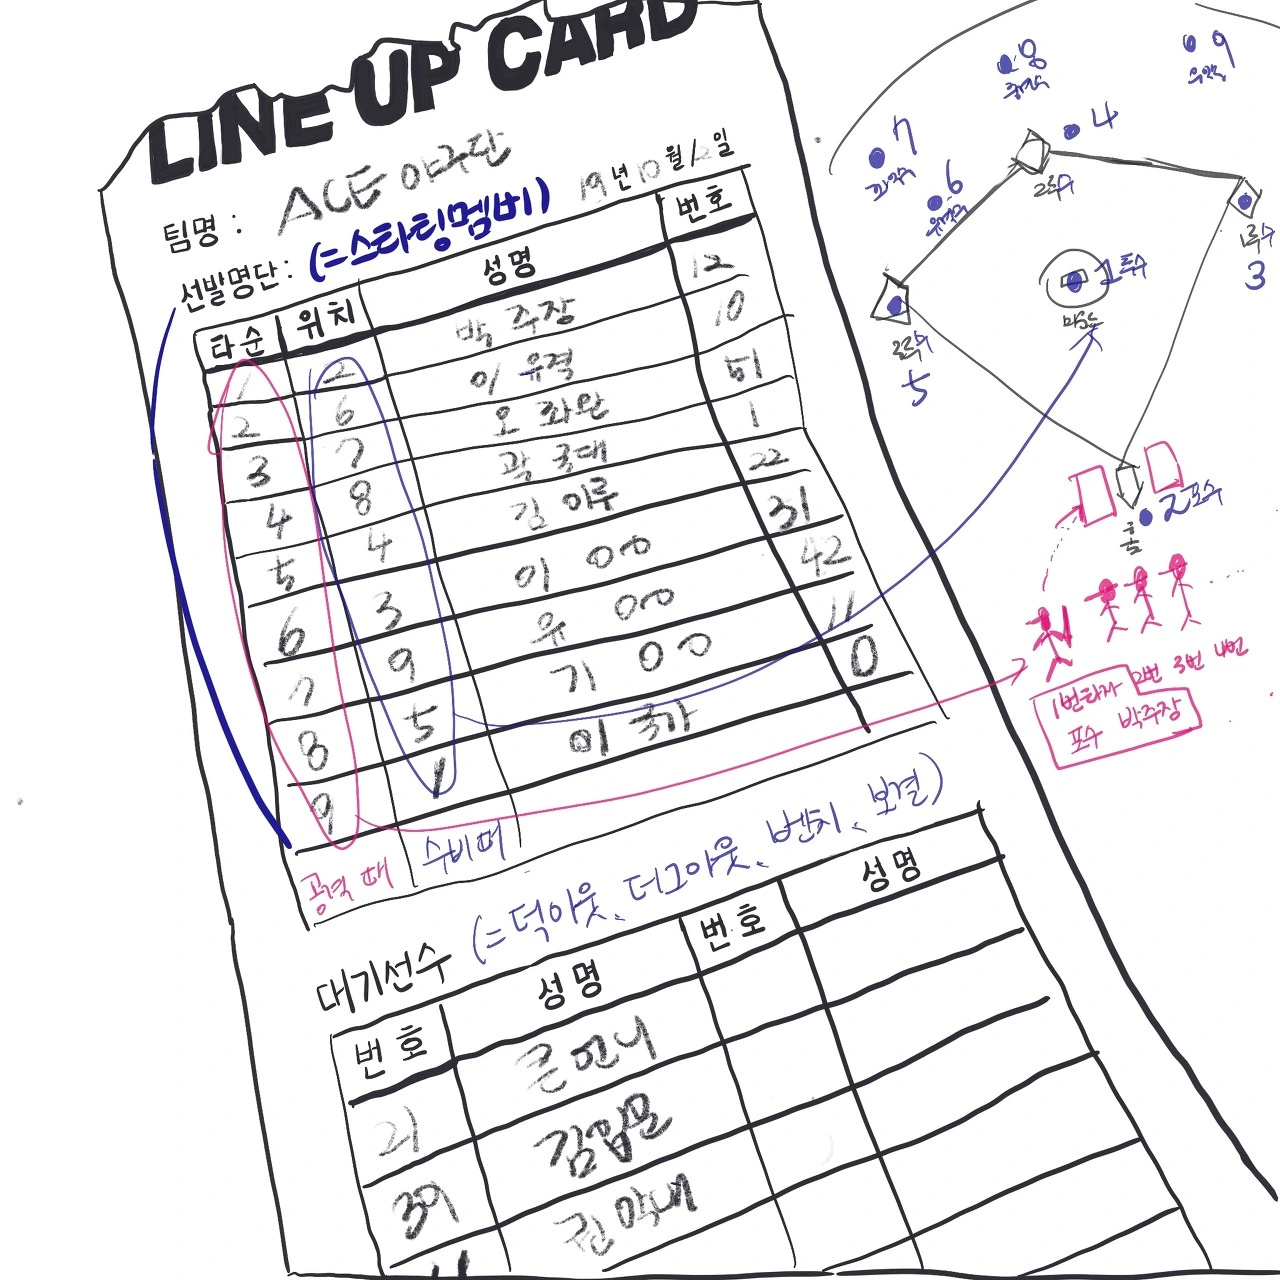 LINE UP CARD
팀명 : ACE 야구단
19년 10월 12일
선발명단 : (=스타팅멤버)
타순 위치 성명 번호
1 2 박 주장 12
2 6 이 유격 10
3 7 오 좌완 51
4 8 곽 국대 1
5 4 김 이루 22
6 3 이 ㅇㅇ 31
7 9 유 ㅇㅇ 42
8 5 기 ㅇㅇ 11
9 1 이 국가 0
공격 때 수비 때
대기선수 (=덕아웃、더그아웃、벤치、보결)
번호 성명 번호 성명
21 큰언니
39 김입문
권막내
8
중견수
9
우익수
7
좌익수
6
유격수
4
2루수
1루수
3
1투수
마운드
3루수
5
2포수
홈
1번타자 2번 3번 4번
포수 박주장